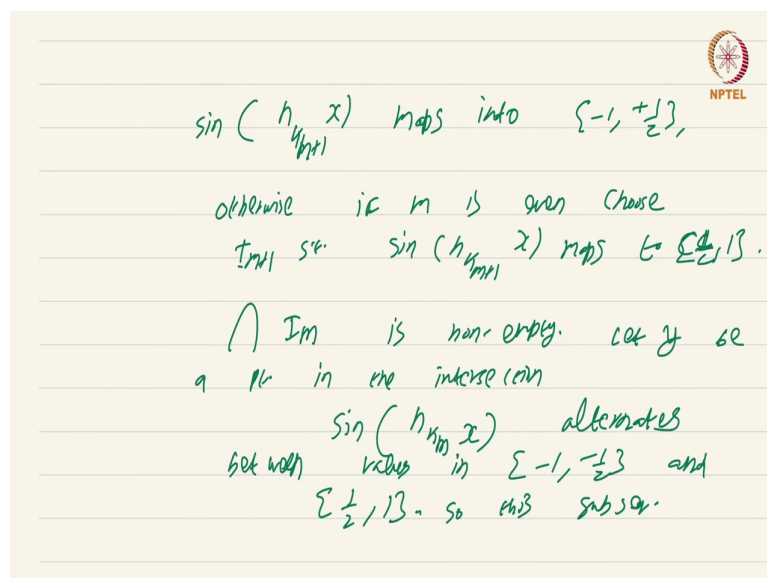 NPTEL
sin ( n_{k_{m+1}} x) maps into {-1, +1/2},
otherwise if m is even choose
I_{m+1} s.t. sin (n_{k_{m+1}} x) maps to [1/2, 1].
⋂ I_m is non-empty. Let y be
a pt in the intersection
sin ( n_{k_m} x) alternates
between values in {-1, -1/2} and
{1/2, 1}. so this subseq.